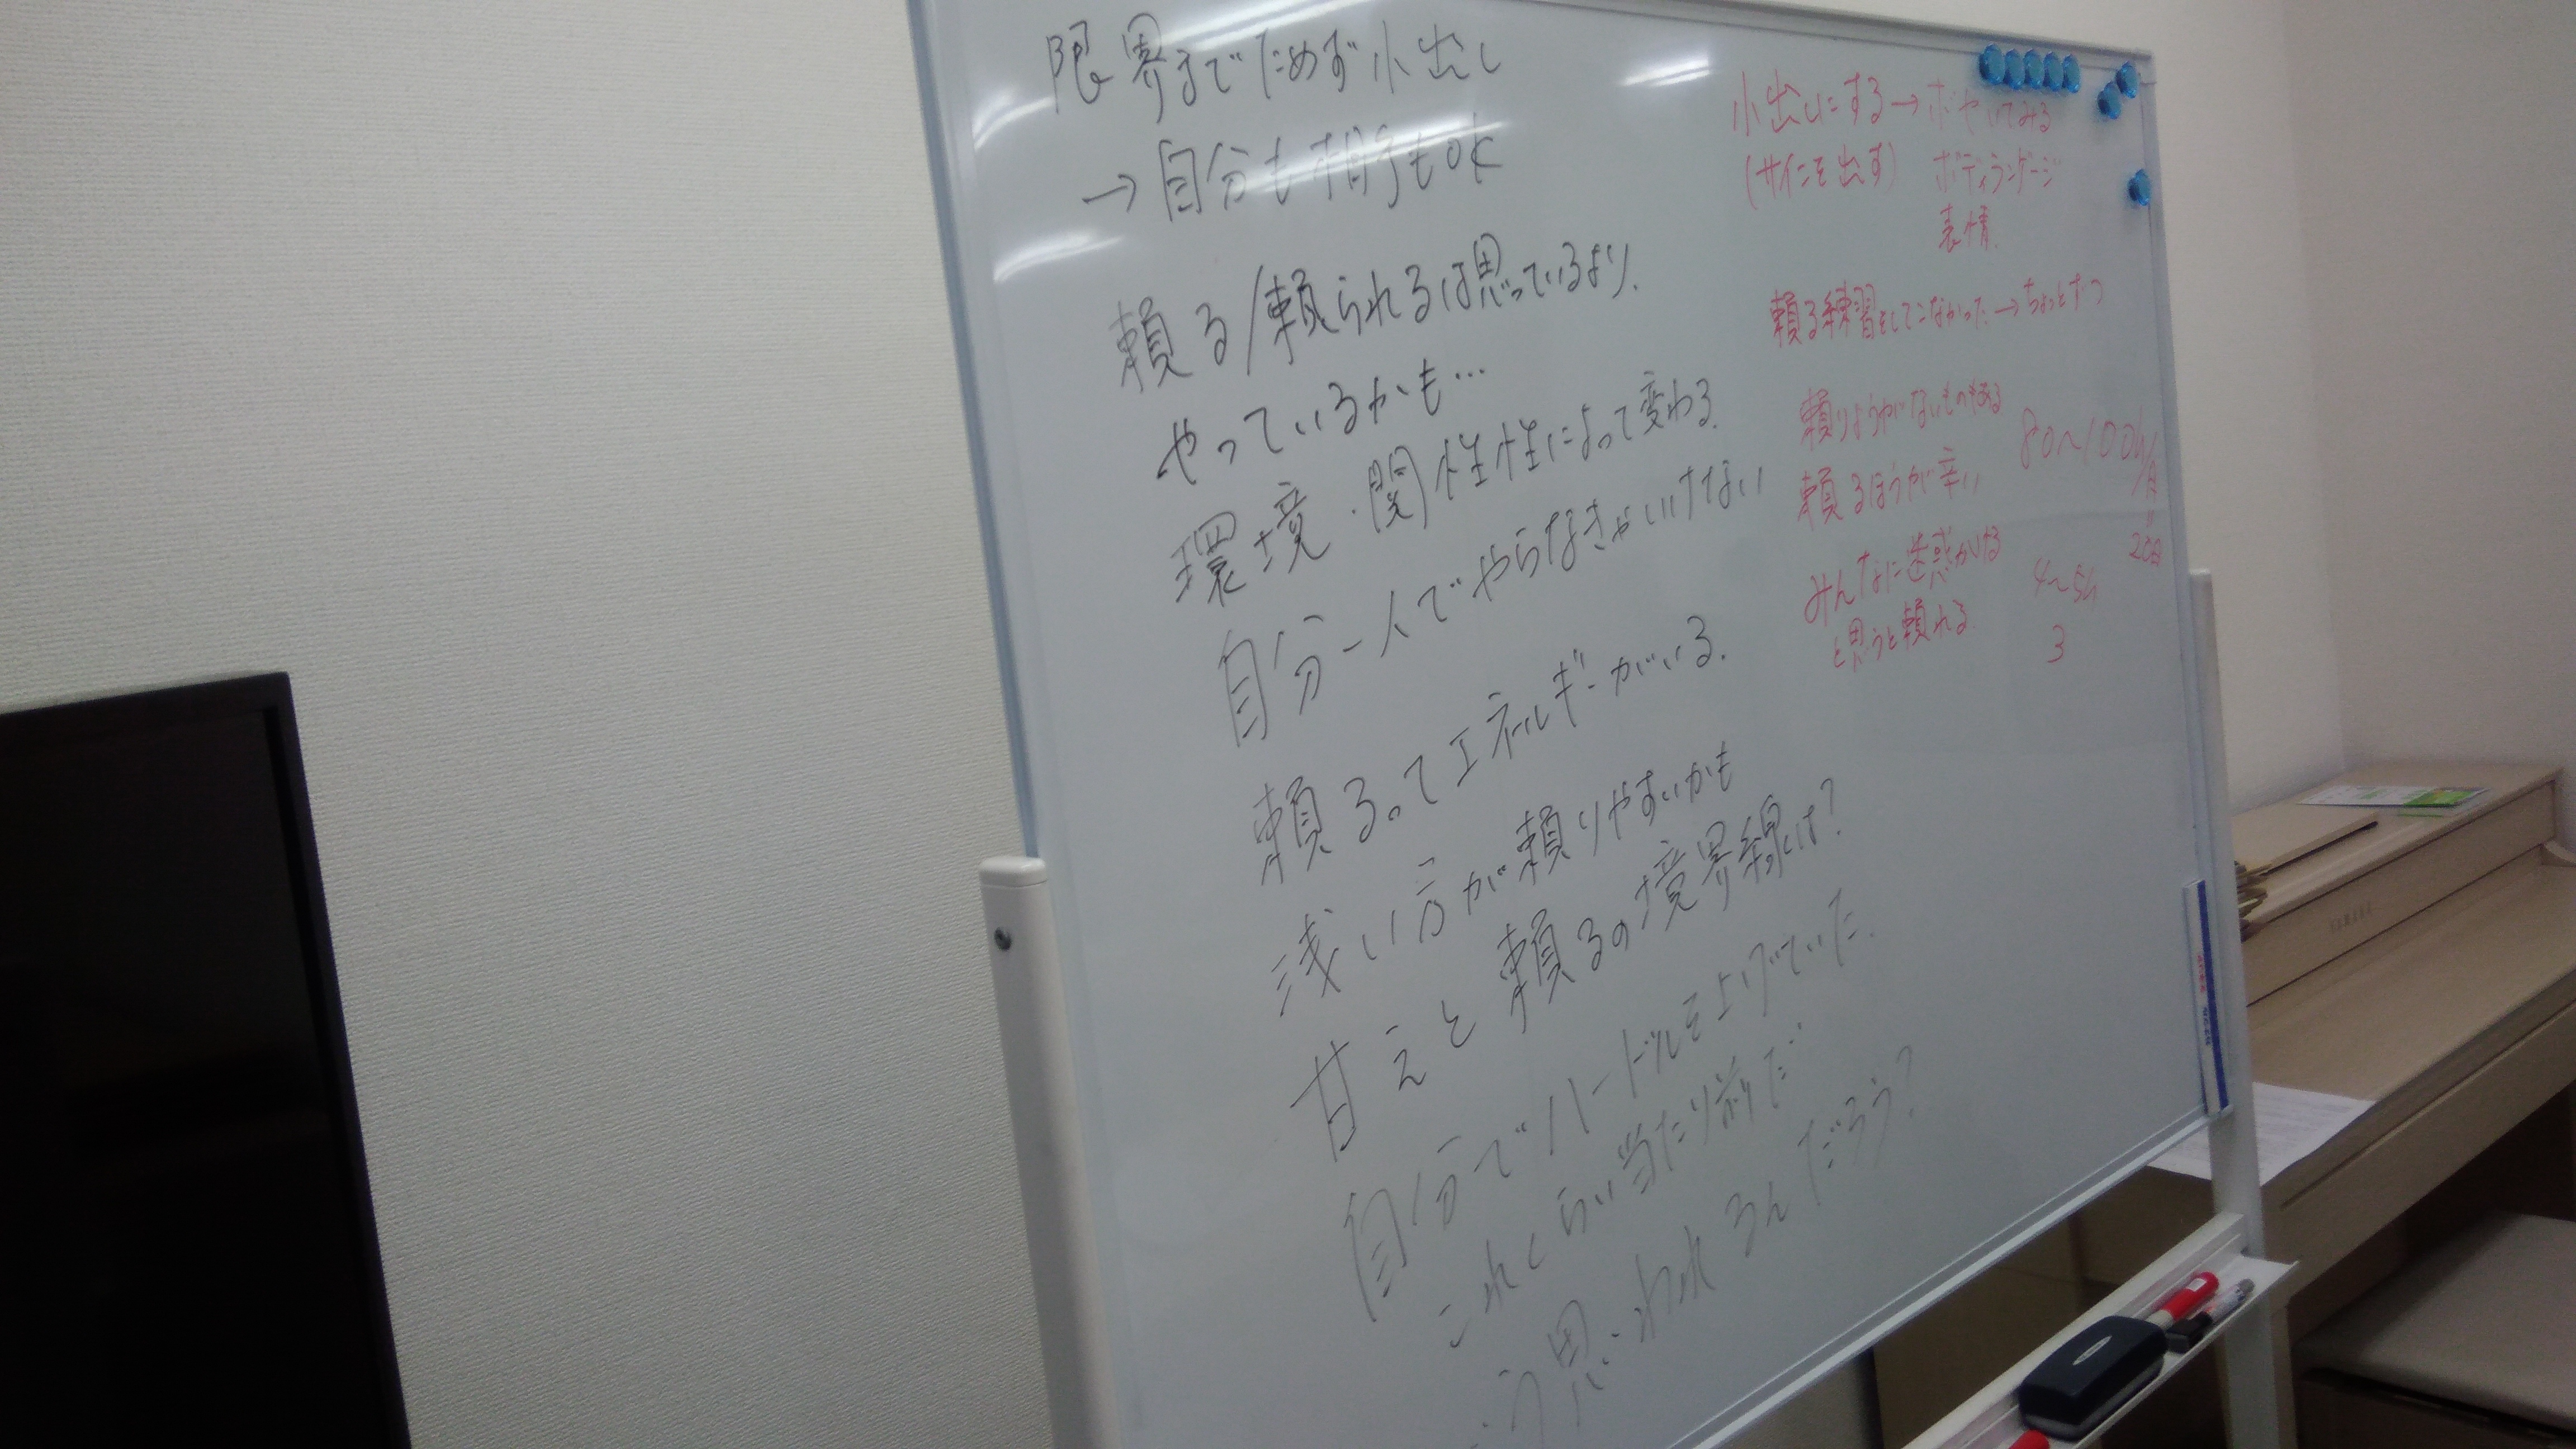 限界までためず小出し
→自分も相手もOK
頼る/頼られるは思っているより、
やっているかも…
環境・関性性によって変わる。
自分一人でやらなきゃいけない
頼るってエネルギーがいる。
浅い方が頼りやすいかも
甘えと頼るの境界線は?
自分でハードルを上げていた。
これくらい当たり前だ
う思われるんだろう?
小出しにする→ボヤいてみる
(サインを出す) ボディランゲージ
表情。
頼る練習をしてこなかった→ちょっとずつ
頼りようがないものもある
頼るほうが辛い
みんなに迷惑かける
と思うと頼れる
80~100h/月
20日
4~5h
3